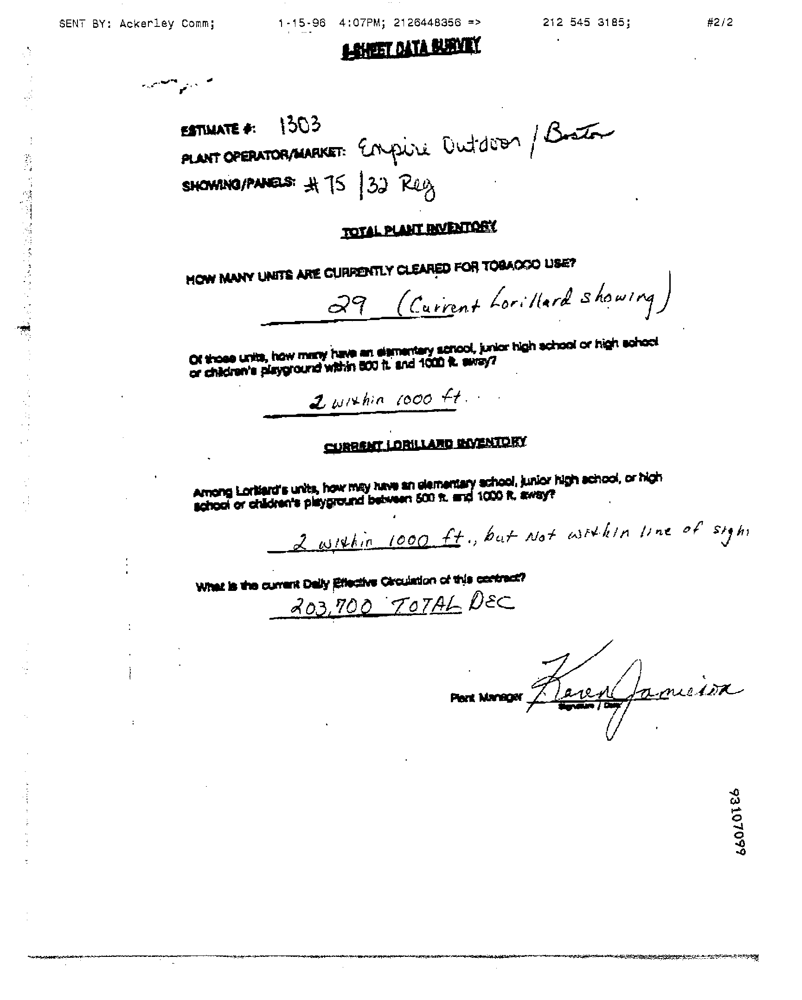 SENT BY: Ackerley Comm; 1-15-96 4:07PM; 2126448356 => 212 545 3185; #2/2
8-SHEET DATA SURVEY
ESTIMATE #: 1303
PLANT OPERATOR/MARKET: Empire Outdoor / Boston
SHOWING/PANELS: #75 / 32 Reg
TOTAL PLANT INVENTORY
HOW MANY UNITS ARE CURRENTLY CLEARED FOR TOBACCO USE?
29 (Current Lorillard showing)
Of those units, how many have an elementary school, junior high school or high school
or children's playground within 500 ft. and 1000 ft. away?
2 within 1000 ft.
CURRENT LORILLARD INVENTORY
Among Lorillard's units, how may have an elementary school, junior high school, or high
school or children's playground between 500 ft. and 1000 ft. away?
2 within 1000 ft., but Not within line of sigh
What is the current Daily Effective Circulation of this contract?
203,700 TOTAL DEC
Plant Manager Karen Jamieson
Signature / Date
93107099